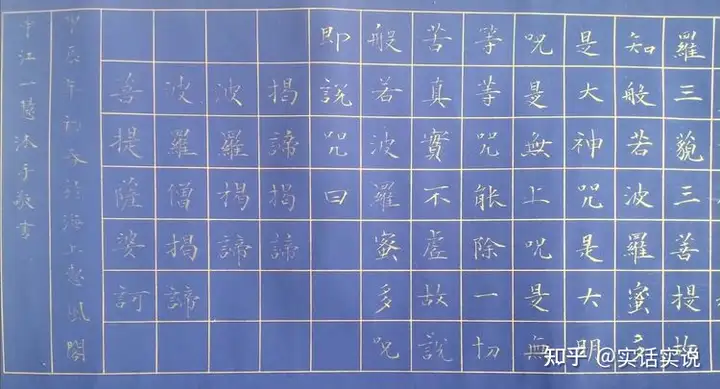 羅三藐三菩提故
知般若波羅蜜多
是大神咒是大明
咒是無上咒是無
等等咒能除一切
苦真實不虛故說
般若波羅蜜多咒
即說咒曰
揭諦揭諦
波羅揭諦
波羅僧揭諦
菩提薩婆訶
甲辰年初於海上風閣
中江一沐手敬書
知乎 @实话实说